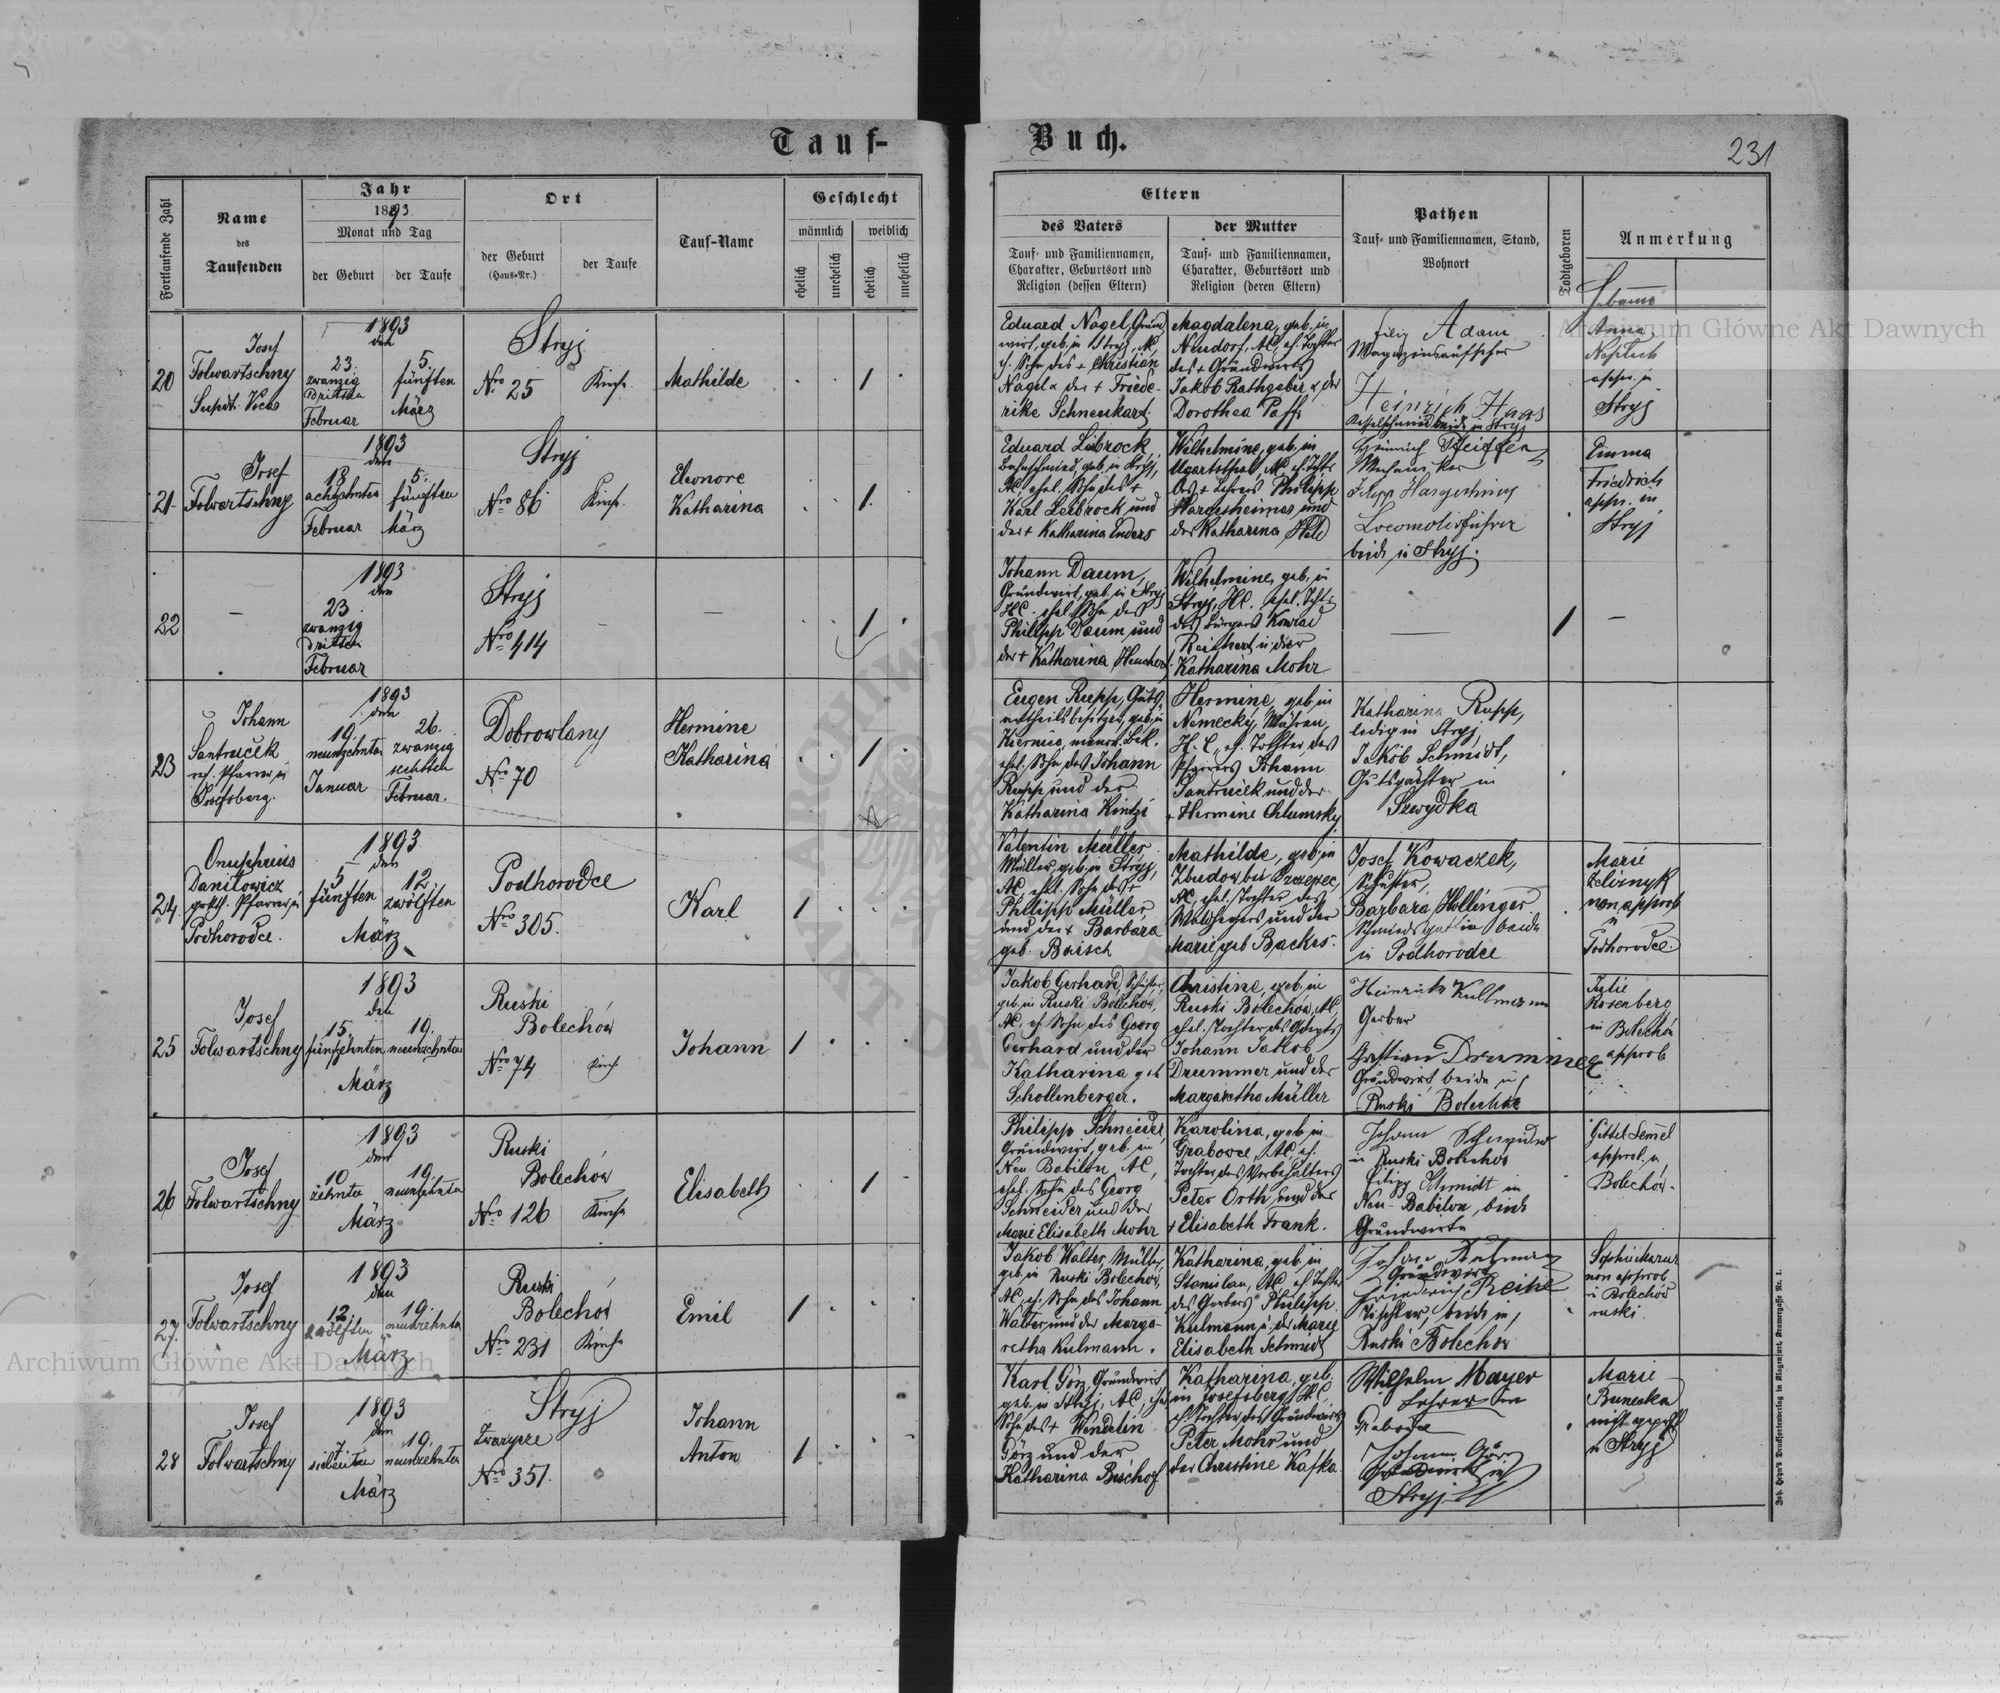 Tauf-
Buch.
231
Fortlaufende Zahl
Name
des
Taufenden
Jahr
1893
Monat und Tag
der Geburt
der Taufe
Ort
der Geburt
(Haus-Nr.)
der Taufe
Tauf-Name
Geschlecht
männlich
weiblich
ehelich
unehelich
ehelich
unehelich
Eltern
des Vaters
Tauf- und Familiennamen,
Charakter, Geburtsort und
Religion (dessen Eltern)
der Mutter
Tauf- und Familiennamen,
Charakter, Geburtsort und
Religion (deren Eltern)
Pathen
Tauf- und Familiennamen, Stand,
Wohnort
Todtgeboren
Anmerkung
Hebamme
20
Josef
Folwartschny
1893
den
23.
zwanzig
dritten
Februar
5.
fünften
März
Stryj
Nro 25
Kirche
Mathilde
1
Eduard Nagel, Grund
wirt, geb. in Stryj, AC,
eh. Sohn des + Christian
Nagel u. der + Friede-
rike Schneukart.
Magdalena, geb. in
Neudorf, AC, eh. Tochter
des + Grundwirts
Jakob Rathgeber u. der
Dorothea Paff
Filip Adam
Magazinsaufseher
Heinrich Haas
Kesselschmied beide in Stryj
Anna
approb. in
Stryj
21.
Josef
Folwartschny
1893
den
18.
achtzehnten
Februar
5.
fünften
März
Stryj
Nro 86
Kirche
Eleonore
Katharina
1.
Eduard Leibrock,
geb. in Stryj,
AC, ehel. Sohn des +
Karl Leibrock und
der + Katharina Enders
Wilhelmine, geb. in
Ugartsthal, AC, eh. Tocht.
des + Lehrers Philipp
Hargesheimer und
der Katharina Held
Heinrich
Mechaniker
Filipp Hargesheimer
Locomotivführer
beide in Stryj.
Emma
Friedrich
appr. in
Stryj
22
—
1893
den
23.
zwanzig
dritten
Februar
Stryj
Nro 414
—
—
1
Johann Daum,
Grundwirt, geb. in Stryj
HC. ehel. Sohn des
Philipp Daum und
der + Katharina Heuchert.
Wilhelmine, geb. in
Stryj, HC. ehel. Tocht.
des Bürgers Konrad
Reichert u. der
Katharina Mohr
—
1
—
23
Johann
Santruček
ref. Pfarrer in
Josefsberg.
1893
den
19.
neunzehnten
Januar
26.
zwanzig
sechsten
Februar.
Dobrowlany
Nro 70
Hermine
Katharina
1
Eugen Rupp, Guts-
antheilsbesitzer, geb. in
Kiernica, menn. Bek.
ehel. Sohn des Johann
Rupp und der
Katharina Kintzi
Hermine, geb. in
Nemecky, Mähren,
H. C., eh. Tochter des
Pfarrers Johann
Santruček und der
+ Hermine Chlumsky.
Katharina Rupp,
ledig in Stryj,
Jakob Schmidt,
Gutspächter in
Szwydka
24.
Onuphrius
Danilowicz
grkth. Pfarrer in
Podhorodce.
1893
den
5
fünften
12.
zwölften
März
Podhorodce
Nro 305.
Karl
1
Valentin Müller
Müller, geb. in Stryj,
AC, ehel. Sohn des +
Philipp Müller
und der + Barbara
geb. Baisch
Mathilde, geb. in
AC, ehel. Tochter des
Waldhegers und der
Marie, geb Backes.
Josef Kowaczek,
Schuster,
Barbara Hollinger
Schmiedsgattin beide
in Podhorodce
Marie
Zelisnyk
non approb
in
Podhorodce.
25
Josef
Folwartschny
1893
den
15.
fünfzehnten
19.
neunzehnten
März
Ruski
Bolechów
Nro 74
Kirche
Johann
1
Jakob Gerhard, Schuster,
geb. in Ruski Bolechow,
AC, eh Sohn des Georg
Gerhard und der
Katharina geb
Schollenberger.
Christine, geb. in
Ruski Bolechow, AC,
ehel. Tochter des
Johann Jakob
Drummer und der
Margaretha Müller
Heinrich Kullmann
Gerber
Christian Drummer
Grundwirt, beide in
Ruski Bolechów
Julie
Rosenberg
in Bolechów
approb
26
Josef
Folwartschny
1893
den
10
zehnten
19.
neunzehnten
März
Ruski
Bolechów
Nro 126
Kirche
Elisabeth
1
Philipp Schneider,
Grundwirt, geb. in
Neu Babilon, AC,
ehel. Sohn des Georg
Schneider und der
Marie Elisabeth Mohr
Karolina, geb. in
Grabowce, AC, eh.
Tochter des Vorbehälters
Peter Orth, und der
+ Elisabeth Frank.
Johann Schneider
in Ruski Bolechów
Filipp Schmidt in
Neu-Babilon, beide
Grundwirte
Gittel Semel
approb. in
Bolechów.
27.
Josef
Folwartschny
1893
den
12.
zwölften
19.
neunzehnten
März
Ruski
Bolechów
Nro 231
Kirche
Emil
1
Jakob Walter, Müller,
geb. in Ruski Bolechow,
AC, eh. Sohn des Johann
Walter und der Marga-
retha Kulmann.
Katharina, geb. in
Stanislau, AC, eh. Tochter
des Gerbers Philipp
Kulmann u. der Marie
Elisabeth Schmidt
Grundwirt
Tischler, beide in
Ruski Bolechow
Sophie Mazur
non approb.
in Bolechów
ruski.
28
Josef
Folwartschny
1893
den
7.
siebenten
19.
neunzehnten
März
Stryj
Zwarycze
Nro 351.
Johann
Anton
1
Karl Görz, Grundwirt
geb. in Stryj, AC, ehel
Sohn des + Wendelin
Görz und der
Katharina Bischof
Katharina, geb.
in Josefsberg, H.C.
eh. Tochter des Grundwirts
Peter Mohr und
der Christine Kafka.
Wilhelm Mayer
Lehrer in
Grabowce
Johann Görz
Grundwirt in
Stryj
Marie
nicht gepr.
in Stryj
Joh. Heyn's Drucksortenverlag in Klagenfurt, Kramergasse Nr. 1.
Archiwum Główne Akt Dawnych
Archiwum Główne Akt Dawnych